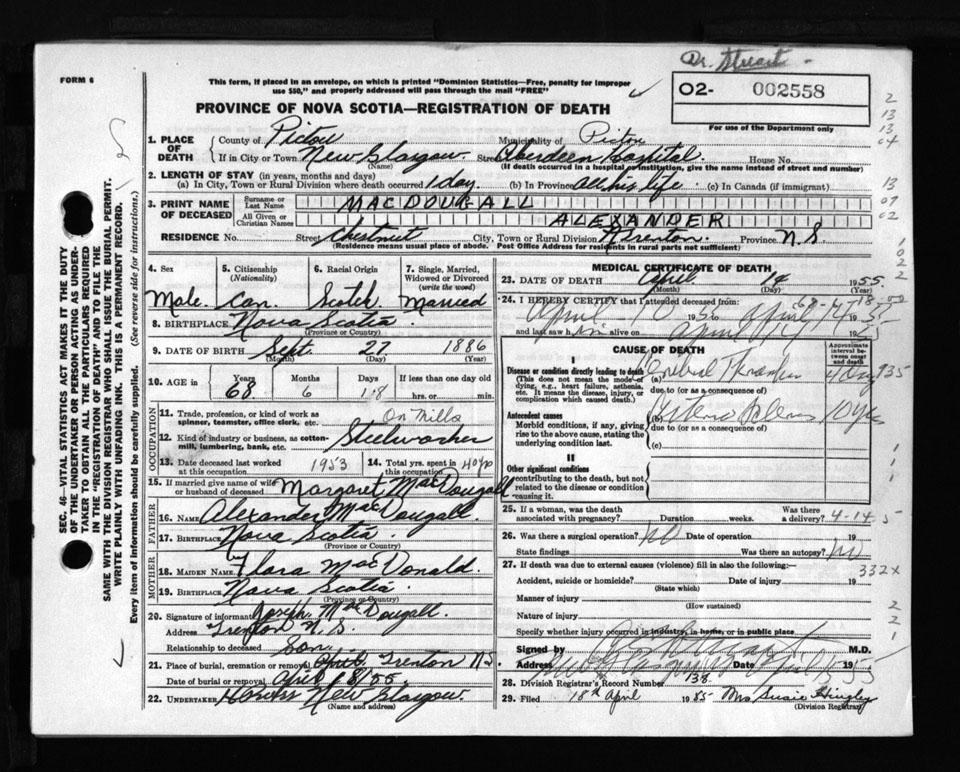 Dr. Stuart
FORM 6
This form, if placed in an envelope, on which is printed "Dominion Statistics—Free, penalty for improper
use $50," and properly addressed will pass through the mail "FREE"
O2- 002558
For use of the Department only
PROVINCE OF NOVA SCOTIA—REGISTRATION OF DEATH
1. PLACE OF DEATH
County of Pictou Municipality of Pictou
If in City or Town New Glasgow. Street Aberdeen Hospital. House No.
(Name) (If death occurred in a hospital or institution, give the name instead of street and number)
2. LENGTH OF STAY (in years, months and days)
(a) In City, Town or Rural Division where death occurred 1 day. (b) In Province all his life (c) In Canada (if immigrant)
3. PRINT NAME OF DECEASED
Surname or Last Name MACDOUGALL
All Given or Christian Names ALEXANDER
RESIDENCE No. Street Chestnut City, Town or Rural Division Trenton. Province N.S
(Residence means usual place of abode. Post Office Address for residents in rural parts not sufficient)
4. Sex
Male.
5. Citizenship (Nationality)
Can.
6. Racial Origin
Scotch
7. Single, Married, Widowed or Divorced (write the word)
Married
8. BIRTHPLACE Nova Scotia
(Province or Country)
9. DATE OF BIRTH Sept. 27 1886
(Month) (Day)
10. AGE in Years Months Days If less than one day old
68 6 18 hrs. or min.
OCCUPATION
11. Trade, profession, or kind of work as spinner, teamster, office clerk, etc. On Mills
12. Kind of industry or business, as cotton-mill, lumbering, bank, etc. Steelworker
13. Date deceased last worked at this occupation 1953
14. Total yrs. spent in this occupation 40
15. If married give name of wife or husband of deceased Margaret MacDougall
FATHER
16. Name Alexander MacDougall.
17. Birthplace Nova Scotia
(Province or Country)
MOTHER
18. MAIDEN NAME Flora MacDonald
19. BIRTHPLACE Nova Scotia
(Province or Country)
20. Signature of informant Joseph MacDougall.
Address Trenton N.S.
Relationship to deceased Son
21. Place of burial, cremation or removal Trenton N.S.
Date of burial or removal April 18/55.
22. UNDERTAKER New Glasgow.
(Name and address)
MEDICAL CERTIFICATE OF DEATH
23. DATE OF DEATH April 1955
(Month) (Day)
24. I HEREBY CERTIFY that I attended deceased from:
April 10 April
and last saw him alive on April
CAUSE OF DEATH
Approximate interval between onset and death
I
Disease or condition directly leading to death
(This does not mean the mode of dying, e.g., heart failure, asthenia, etc. It means the disease, injury, or complication which caused death.)
(a) Cerebral
due to (or as a consequence of)
Antecedent causes
Morbid conditions, if any, giving rise to the above cause, stating the underlying condition last.
(b) 10 yrs
due to (or as a consequence of)
(c)
II
Other significant conditions contributing to the death, but not related to the disease or condition causing it.
25. If a woman, was the death associated with pregnancy? Duration weeks. Was there a delivery? 4-14-5
26. Was there a surgical operation? No Date of operation 19
State findings Was there an autopsy? No
27. If death was due to external causes (violence) fill in also the following:— 332x
Accident, suicide or homicide? Date of injury 19
(State which)
Manner of injury
(How sustained)
Nature of injury
Specify whether injury occurred in industry, in home, or in public place
Signed by M.D.
Address Date April 1955
28. Division Registrar's Record Number 138.
29. Filed 18th April 1955 Mrs Susie Hingley
(Division Registrar)
SEC. 46—VITAL STATISTICS ACT MAKES IT THE DUTY
OF THE UNDERTAKER OR PERSON ACTING AS UNDER-
TAKER TO OBTAIN ALL THE PARTICULARS REQUIRED
IN THE "REGISTRATION OF DEATH" AND TO FILE THE
SAME WITH THE DIVISION REGISTRAR WHO SHALL ISSUE THE BURIAL PERMIT.
WRITE PLAINLY WITH UNFADING INK. THIS IS A PERMANENT RECORD.
Every item of information should be carefully supplied. (See reverse side for instructions).